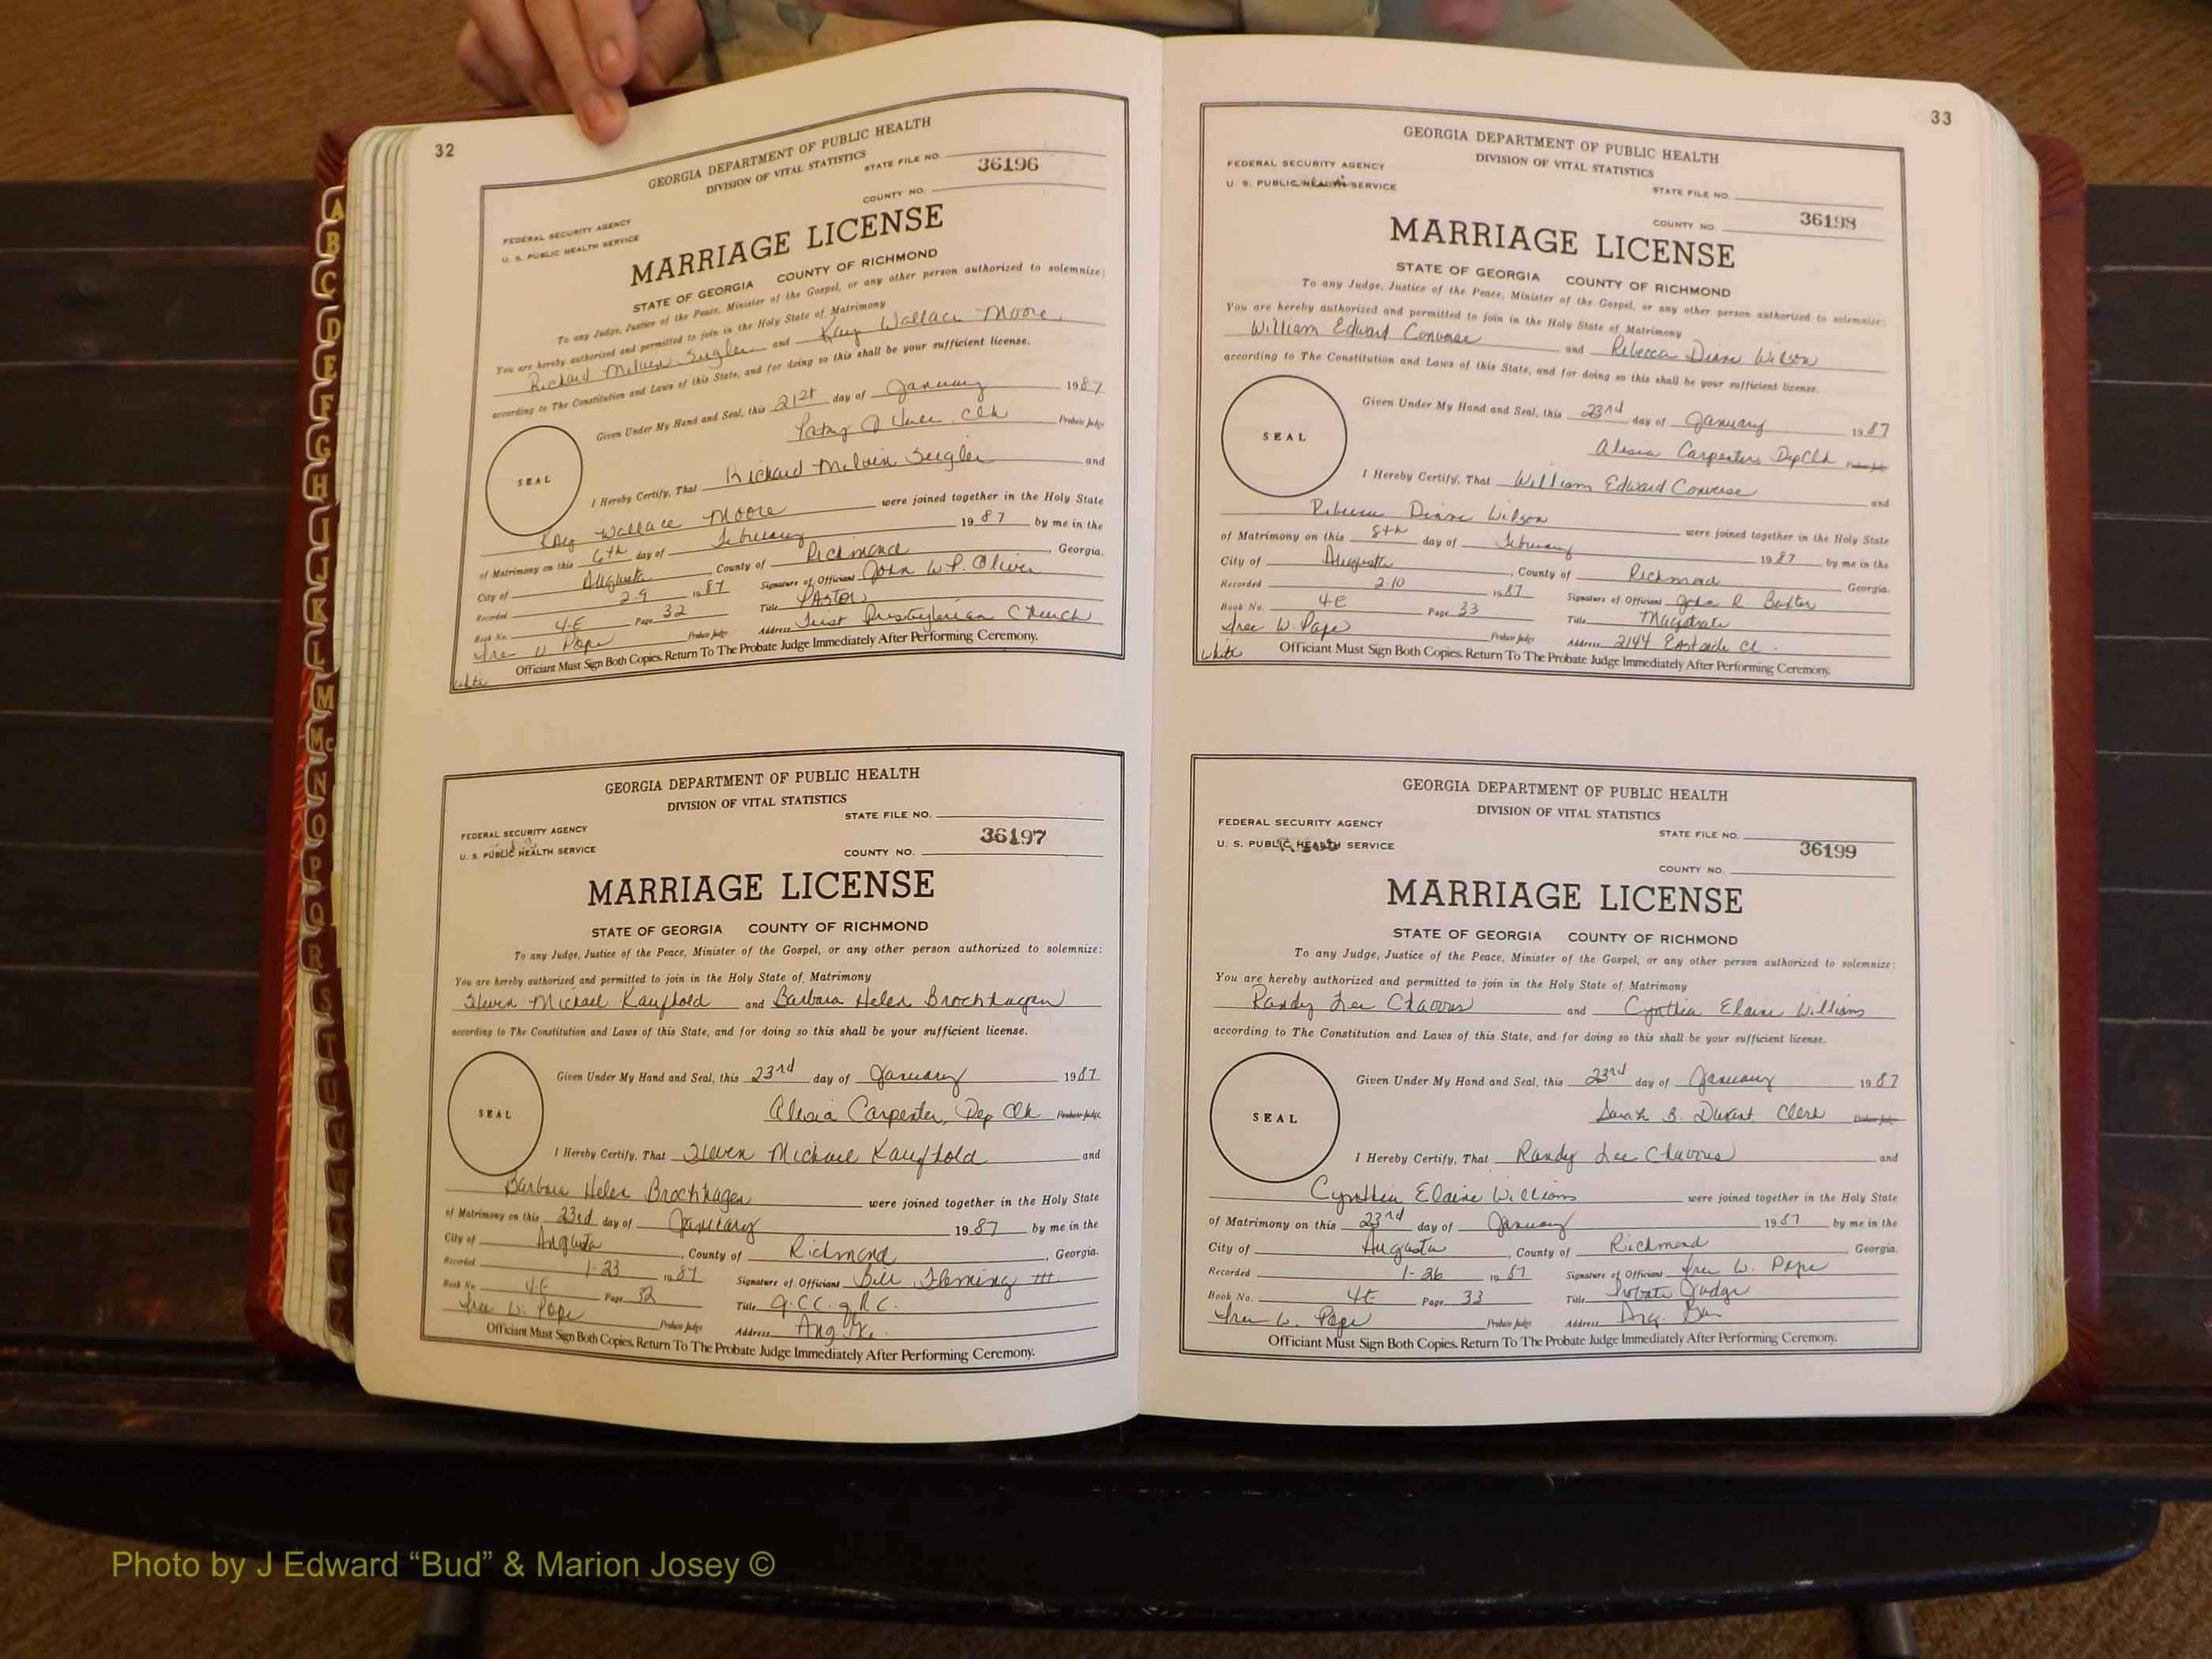 32
GEORGIA DEPARTMENT OF PUBLIC HEALTH
DIVISION OF VITAL STATISTICS
STATE FILE NO.
36196
COUNTY NO.
FEDERAL SECURITY AGENCY
U. S. PUBLIC HEALTH SERVICE
MARRIAGE LICENSE
STATE OF GEORGIA COUNTY OF RICHMOND
To any Judge, Justice of the Peace, Minister of the Gospel, or any other person authorized to solemnize:
You are hereby authorized and permitted to join in the Holy State of Matrimony
Richard Melvin Seigler and Kay Wallace Moore
according to The Constitution and Laws of this State, and for doing so this shall be your sufficient license.
Given Under My Hand and Seal, this 21st day of January 1987
Clk Probate Judge
SEAL
I Hereby Certify, That Richard Melvin Seigler and
Kay Wallace Moore were joined together in the Holy State
of Matrimony on this 6th day of February 1987 by me in the
City of Augusta, County of Richmond, Georgia.
Recorded 2-9 1987 Signature of Officiant John W. P. Oliver
Book No. 4-E Page 32 Title Pastor
W. Pope Probate Judge Address First Presbyterian Church
Officiant Must Sign Both Copies. Return To The Probate Judge Immediately After Performing Ceremony.
white
GEORGIA DEPARTMENT OF PUBLIC HEALTH
DIVISION OF VITAL STATISTICS
STATE FILE NO.
FEDERAL SECURITY AGENCY
U. S. PUBLIC HEALTH SERVICE
36197
COUNTY NO.
MARRIAGE LICENSE
STATE OF GEORGIA COUNTY OF RICHMOND
To any Judge, Justice of the Peace, Minister of the Gospel, or any other person authorized to solemnize:
You are hereby authorized and permitted to join in the Holy State of Matrimony
Steven Michael Kaufhold and Barbara Helen Brochhagen
according to The Constitution and Laws of this State, and for doing so this shall be your sufficient license.
Given Under My Hand and Seal, this 23rd day of January 1987
Alesia Carpenter, Dep Clk Probate Judge
SEAL
I Hereby Certify, That Steven Michael Kaufhold and
Barbara Helen Brochhagen were joined together in the Holy State
of Matrimony on this 23rd day of January 1987 by me in the
City of Augusta, County of Richmond, Georgia.
Recorded 1-23 1987 Signature of Officiant Bill Fleming III
Book No. 4-E Page 32 Title
W. Pope Probate Judge Address Aug.
Officiant Must Sign Both Copies. Return To The Probate Judge Immediately After Performing Ceremony.
33
GEORGIA DEPARTMENT OF PUBLIC HEALTH
DIVISION OF VITAL STATISTICS
FEDERAL SECURITY AGENCY
U. S. PUBLIC HEALTH SERVICE
STATE FILE NO.
36198
COUNTY NO.
MARRIAGE LICENSE
STATE OF GEORGIA COUNTY OF RICHMOND
To any Judge, Justice of the Peace, Minister of the Gospel, or any other person authorized to solemnize:
You are hereby authorized and permitted to join in the Holy State of Matrimony
William Edward Converse and Rebecca Diane Wilson
according to The Constitution and Laws of this State, and for doing so this shall be your sufficient license.
Given Under My Hand and Seal, this 23rd day of January 1987
Alesia Carpenter, Dep Clk Probate Judge
SEAL
I Hereby Certify, That William Edward Converse and
Rebecca Diane Wilson were joined together in the Holy State
of Matrimony on this 8th day of February 1987 by me in the
City of Augusta, County of Richmond, Georgia.
Recorded 2-10 1987 Signature of Officiant John R Baxter
Book No. 4-E Page 33 Title Magistrate
W. Pope Probate Judge Address 2144 Eastside Ct.
white
Officiant Must Sign Both Copies. Return To The Probate Judge Immediately After Performing Ceremony.
GEORGIA DEPARTMENT OF PUBLIC HEALTH
DIVISION OF VITAL STATISTICS
FEDERAL SECURITY AGENCY
U. S. PUBLIC HEALTH SERVICE
STATE FILE NO.
36199
COUNTY NO.
MARRIAGE LICENSE
STATE OF GEORGIA COUNTY OF RICHMOND
To any Judge, Justice of the Peace, Minister of the Gospel, or any other person authorized to solemnize:
You are hereby authorized and permitted to join in the Holy State of Matrimony
Randy Lee Chavous and Cynthia Elaine Williams
according to The Constitution and Laws of this State, and for doing so this shall be your sufficient license.
Given Under My Hand and Seal, this 23rd day of January 1987
Sarah B. Durant, Clerk Probate Judge
SEAL
I Hereby Certify, That Randy Lee Chavous and
Cynthia Elaine Williams were joined together in the Holy State
of Matrimony on this 23rd day of January 1987 by me in the
City of Augusta, County of Richmond, Georgia.
Recorded 1-26 1987 Signature of Officiant W. Pope
Book No. 4E Page 33 Title Probate Judge
W. Pope Probate Judge Address
Officiant Must Sign Both Copies. Return To The Probate Judge Immediately After Performing Ceremony.
A
B
C
D
E
F
G
H
I
J
K
L
M
Mc
N
O
P
Q
R
S
T
U
V
Photo by J Edward “Bud” & Marion Josey ©